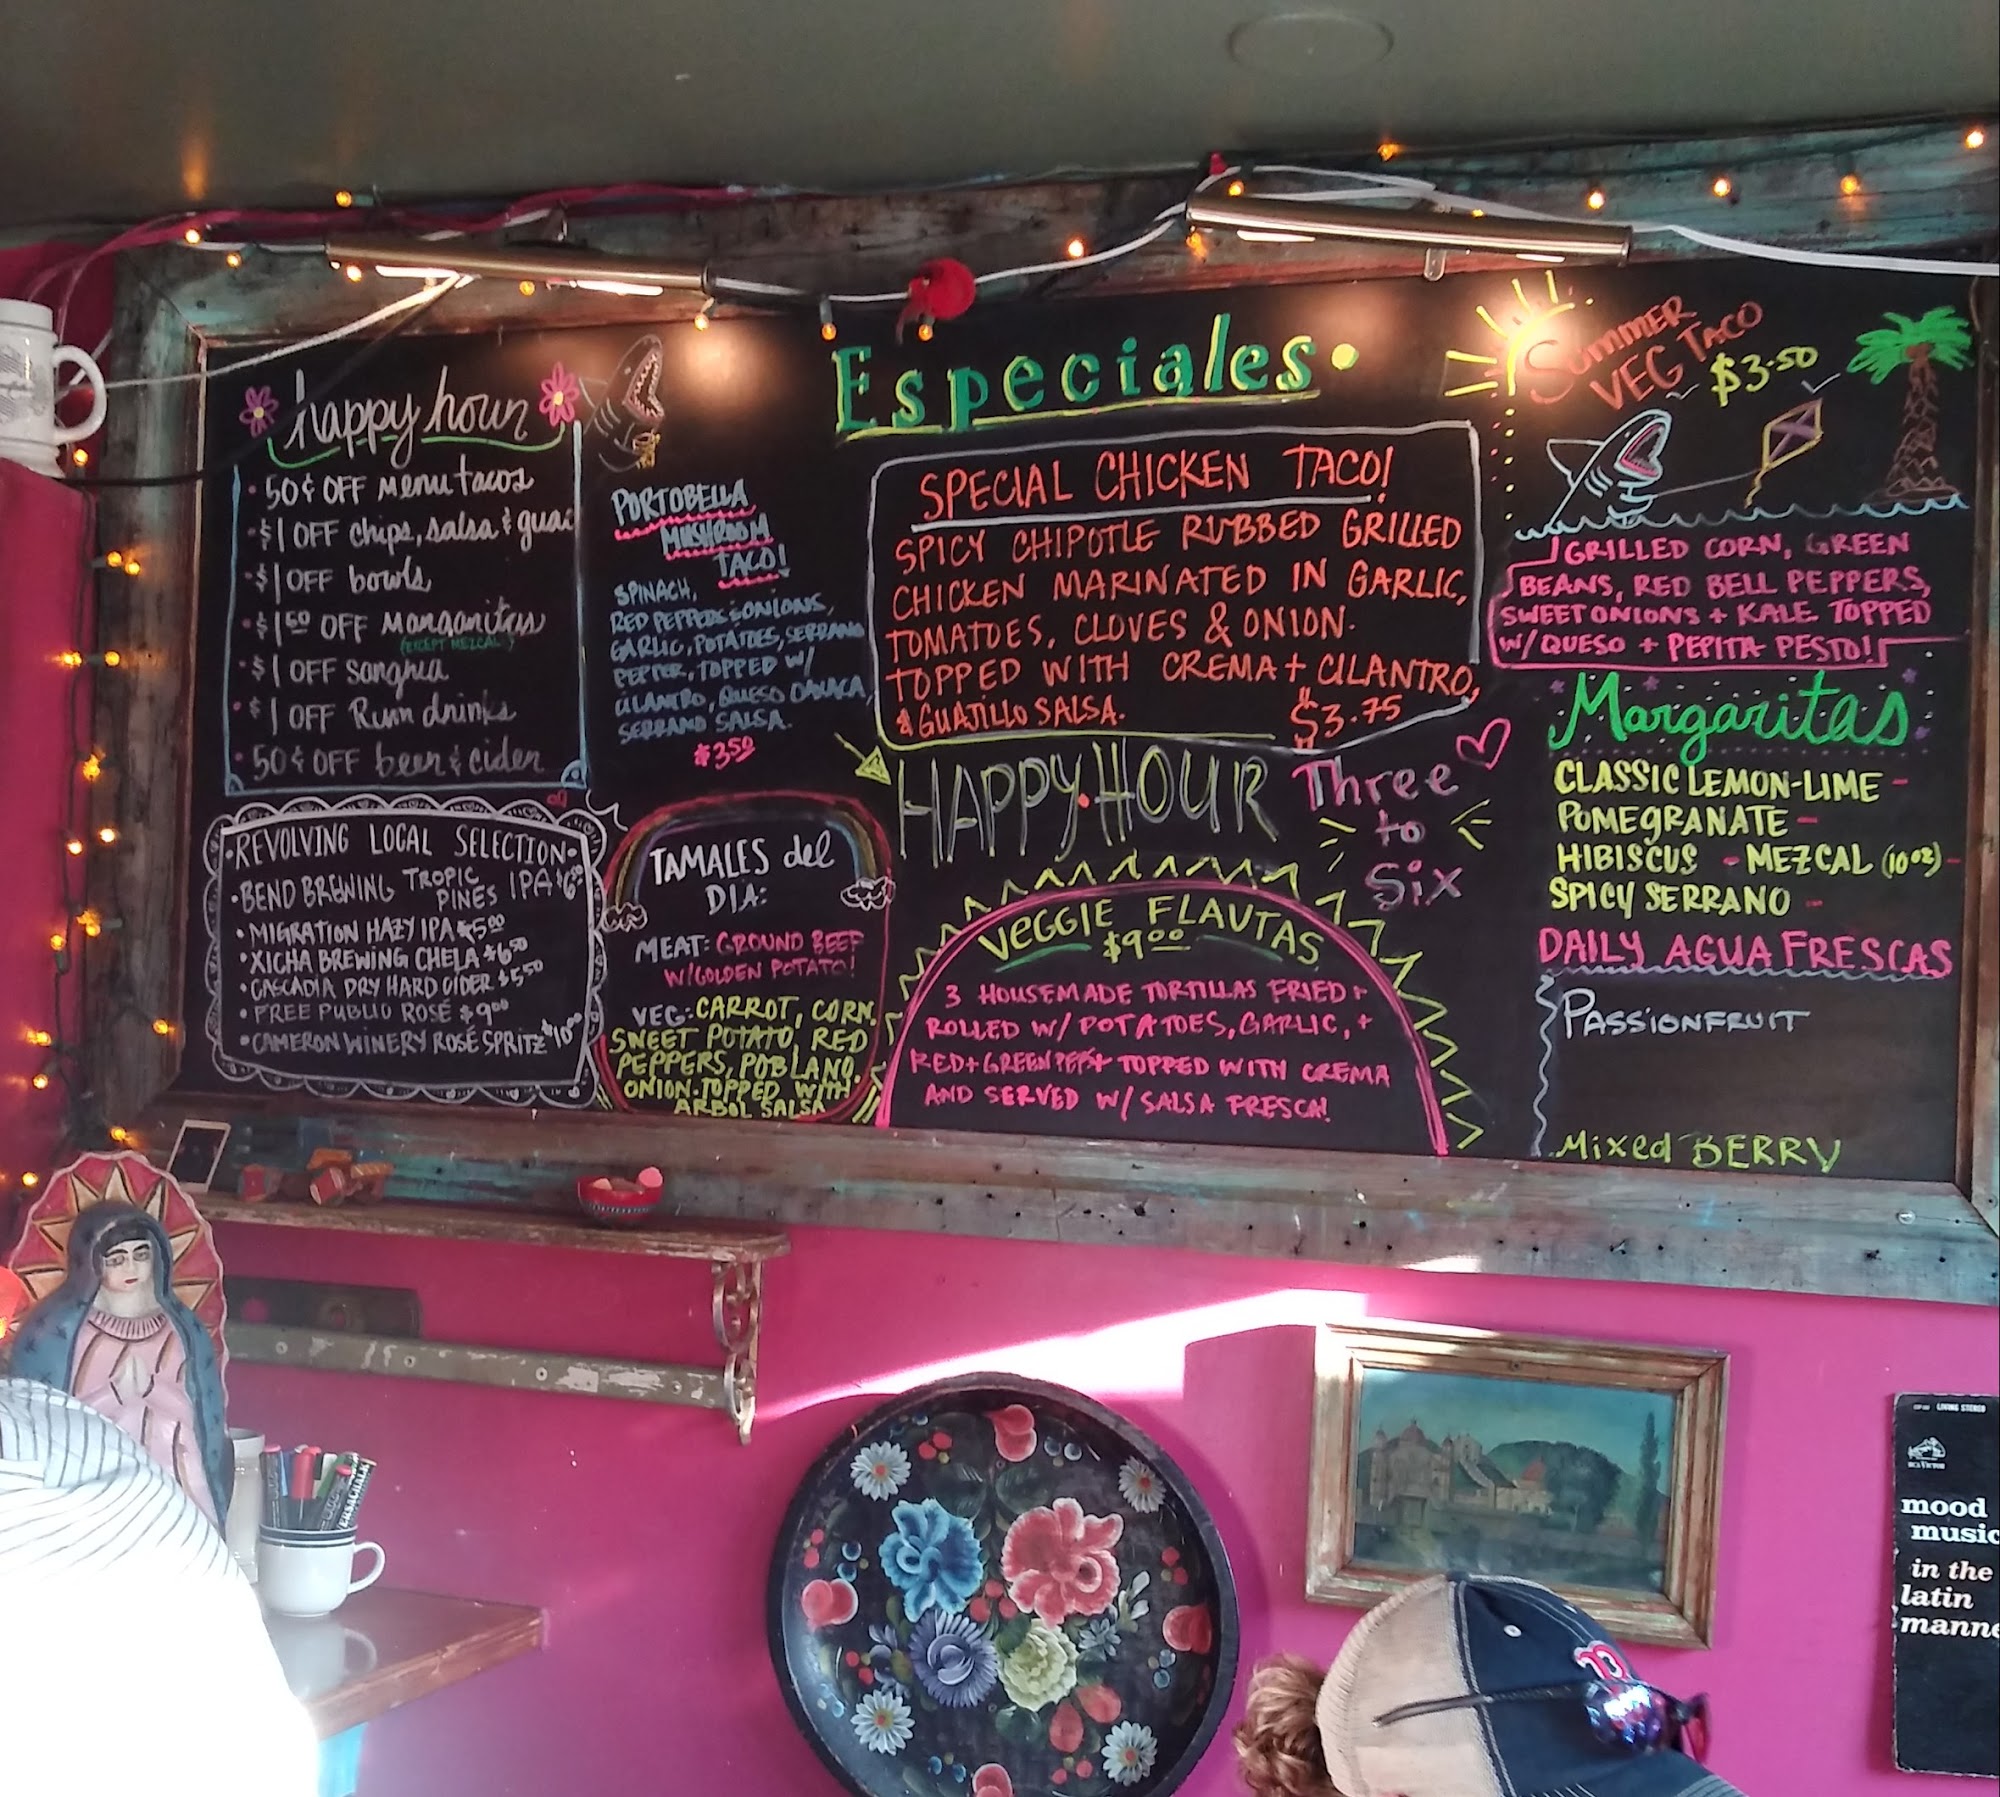 happy hour
• 50¢ OFF menu tacos
• $1 OFF chips, salsa & guac
• $1 OFF bowls
• $1 50 OFF Margaritas
(EXCEPT MEZCAL)
• $1 OFF sangria
• $1 OFF Rum drinks
• 50¢ OFF beer & cider
• REVOLVING LOCAL SELECTION •
• BEND BREWING TROPIC PINES IPA
• MIGRATION HAZY IPA $5.00
• XICHA BREWING CHELA $6.50
• CASCADIA DRY HARD CIDER $5.50
• FREE PUBLIC ROSÉ $9.00
• CAMERON WINERY ROSÉ SPRITZ $10.00
PORTOBELLA
MUSHROOM
TACO!
SPINACH,
RED PEPPERS & ONIONS,
GARLIC, POTATOES, SERRANO
PEPPER, TOPPED W/
CILANTRO, QUESO OAXACA,
SERRANO SALSA.
$3.50
TAMALES del
DIA:
MEAT: GROUND BEEF
W/GOLDEN POTATO!
VEG: CARROT, CORN,
SWEET POTATO, RED
PEPPERS, POBLANO.
ONION. TOPPED WITH
ARBOL SALSA
Especiales.
SPECIAL CHICKEN TACO!
SPICY CHIPOTLE RUBBED GRILLED
CHICKEN MARINATED IN GARLIC,
TOMATOES, CLOVES & ONION.
TOPPED WITH CREMA + CILANTRO,
& GUAJILLO SALSA. $3.75
HAPPY.HOUR
Three
to
Six
VEGGIE FLAUTAS
$9.00
3 HOUSEMADE TORTILLAS FRIED +
ROLLED W/ POTATOES, GARLIC, +
RED + GREEN PEPS + TOPPED WITH CREMA
AND SERVED W/ SALSA FRESCA!
SUMMER
VEG TACO
$3.50
GRILLED CORN, GREEN
BEANS, RED BELL PEPPERS,
SWEET ONIONS + KALE TOPPED
W/ QUESO + PEPITA PESTO!
Margaritas
CLASSIC LEMON-LIME -
POMEGRANATE -
HIBISCUS - MEZCAL (10 oz) -
SPICY SERRANO -
DAILY AGUA FRESCAS
PASSIONFRUIT
Mixed BERRY
LIVING STEREO
RCA VICTOR
mood
music
in the
latin
manne
VERSACHALK
B